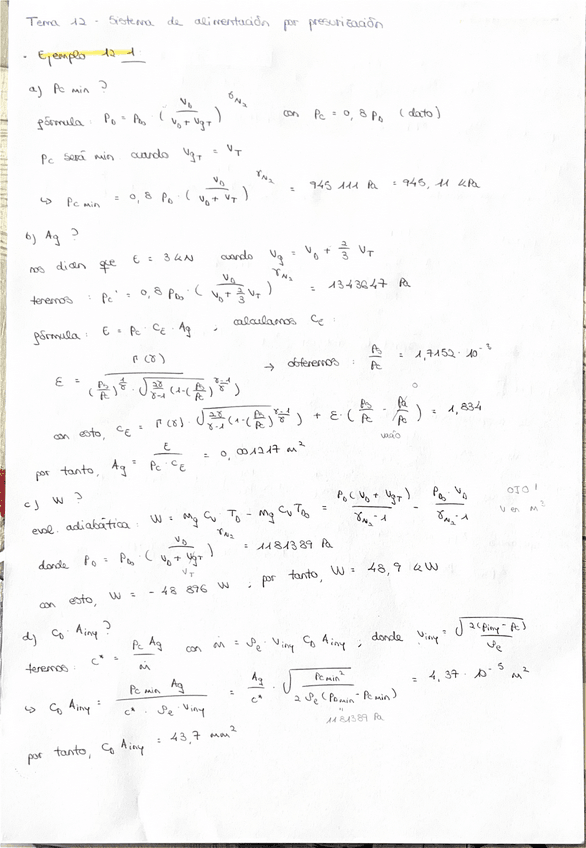 Tema 12 - Sistema de alimentación por presurización
· Ejemplo 12.1
a) Pc min ?
fórmula : P₀ = P₀₀ · (V₀ / (V₀ + VgT))^γN₂ con Pc = 0,8 P₀ (dato)
Pc será min cuando VgT = VT
↳ Pc min = 0,8 P₀ · (V₀ / (V₀ + VT))^γN₂ = 945 111 Pa = 945,11 kPa
b) Ag ?
nos dicen que E = 3 kN cuando Vg = V₀ + 2/3 VT
tenemos : Pc' = 0,8 P₀₀ · (V₀ / (V₀ + 2/3 VT))^γN₂ = 1343647 Pa
fórmula : E = Pc · CE · Ag ; calculamos CE :
ε = Γ(γ) / ((Ps/Pc)^(1/γ) · √(2γ/(γ-1) (1-(Ps/Pc)^((γ-1)/γ)))) → obtenemos : Ps/Pc = 1,7152 · 10⁻³
con esto, CE = Γ(γ) · √(2γ/(γ-1) (1-(Ps/Pc)^((γ-1)/γ))) + ε · (Ps/Pc - Pa/Pc) = 1,834
0
vacío
por tanto, Ag = E / (Pc · CE) = 0,001217 m²
c) W ?
evol. adiabática : W = mg Cv T₀ - mg Cv T₀₀ = P₀(V₀ + VgT) / (γN₂ - 1) - P₀₀ · V₀ / (γN₂ - 1)
OJO !
V en m³
donde P₀ = P₀₀ · (V₀ / (V₀ + VgT))^γN₂ = 1181389 Pa
VT
con esto, W = - 48 896 W ; por tanto, W = 48,9 kW
d) C₀ · Ainy ?
tenemos : c* = Pc Ag / ṁ con ṁ = ρe · Viny C₀ Ainy ; donde Viny = √(2(Piny - Pc) / ρe)
↳ C₀ Ainy = Pc min Ag / (c* · ρe · Viny) = Ag / c* · √(Pc min² / (2 ρe (P₀min - Pc min))) = 4,37 · 10⁻⁵ m²
1181389 Pa
por tanto, C₀ Ainy = 43,7 mm²